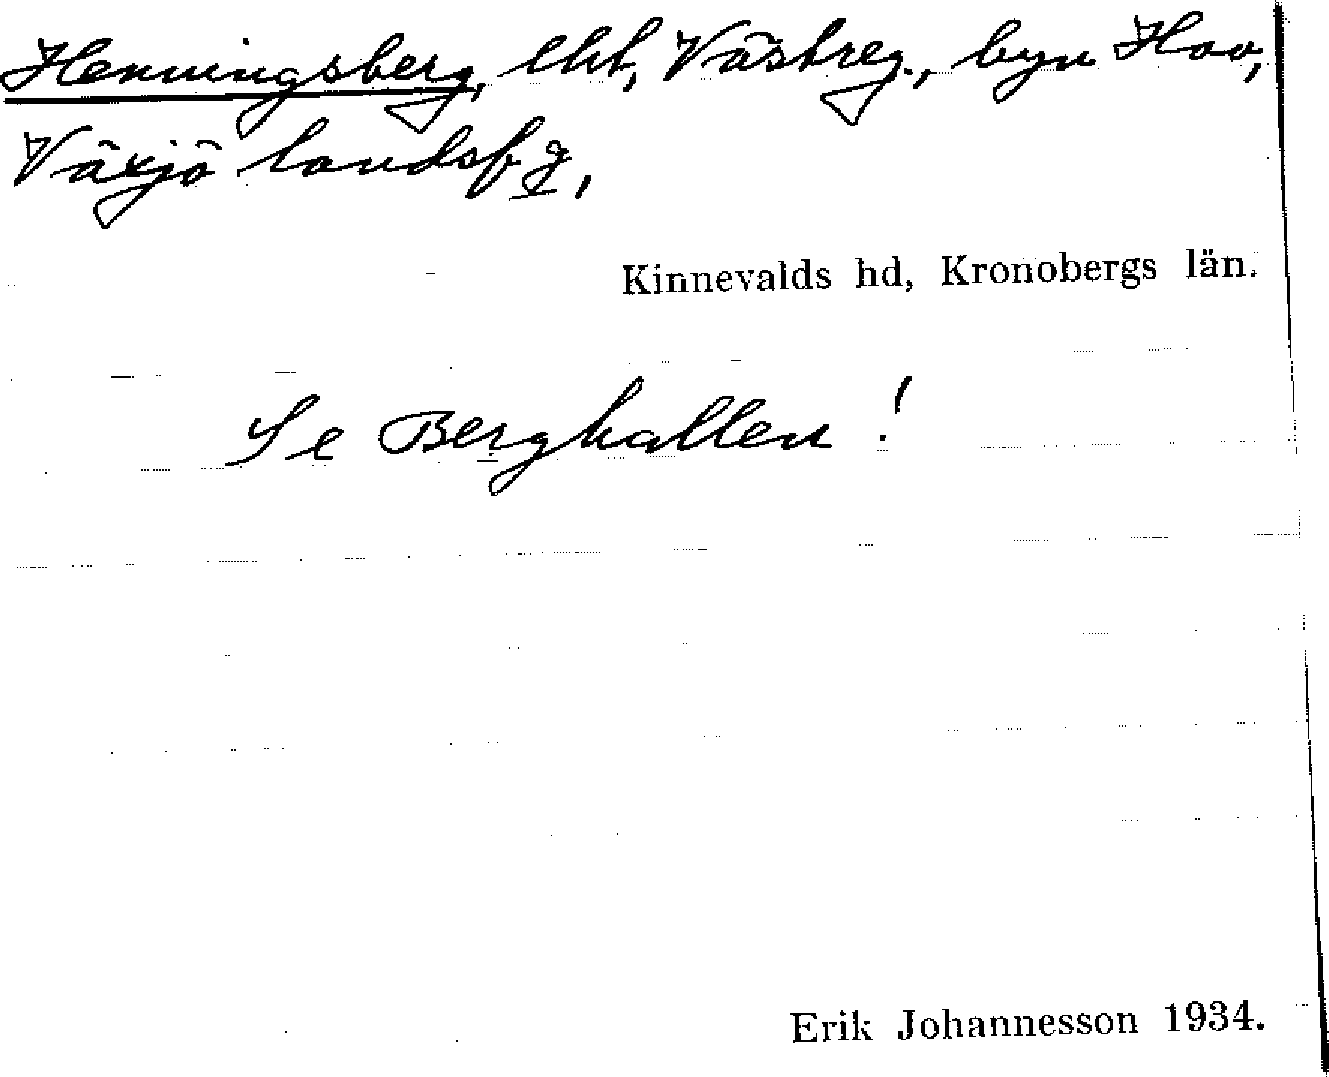 Henningsberg, lht, Västreg., byn Hov,
Växjö landsfg,
Kinnevalds hd, Kronobergs län.
Se Berghallen!
Erik Johannesson 1934.